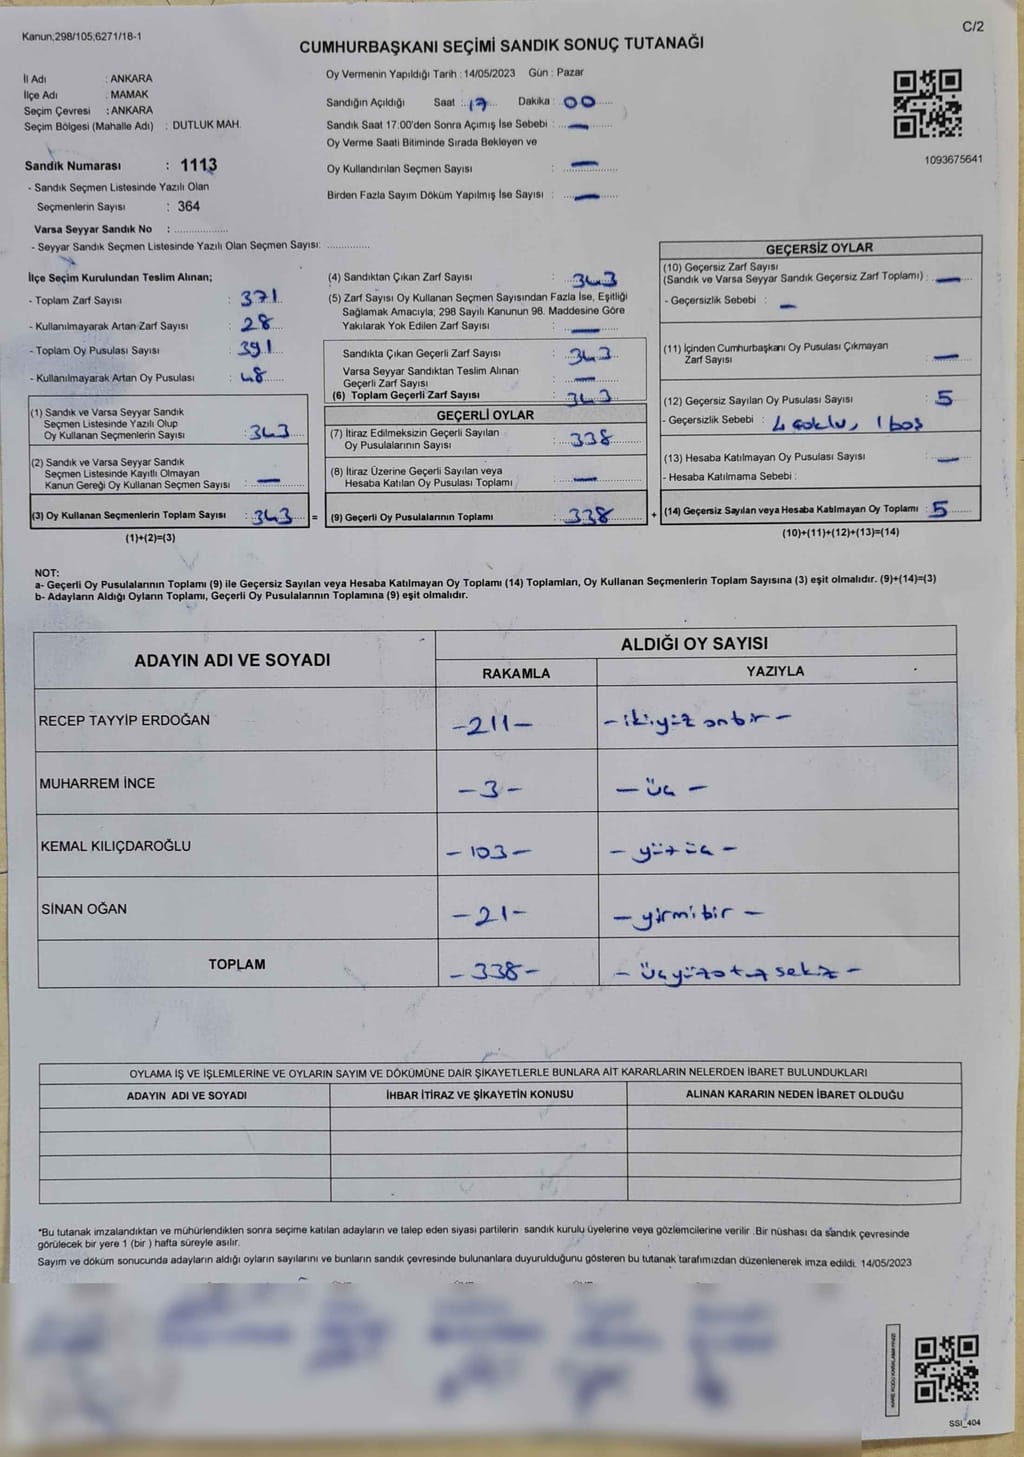 Kanun;298/105,6271/18-1
C/2
CUMHURBAŞKANI SEÇİMİ SANDIK SONUÇ TUTANAĞI
İl Adı : ANKARA
İlçe Adı : MAMAK
Seçim Çevresi : ANKARA
Seçim Bölgesi (Mahalle Adı) : DUTLUK MAH.
Sandık Numarası : 1113
- Sandık Seçmen Listesinde Yazılı Olan
Seçmenlerin Sayısı : 364
Varsa Seyyar Sandık No : ..................
- Seyyar Sandık Seçmen Listesinde Yazılı Olan Seçmen Sayısı: ..............
Oy Vermenin Yapıldığı Tarih : 14/05/2023 Gün : Pazar
Sandığın Açıldığı Saat : 17 Dakika : 00
Sandık Saat 17:00'den Sonra Açımış İse Sebebi : —
Oy Verme Saati Bitiminde Sırada Bekleyen ve
Oy Kullandırılan Seçmen Sayısı : —
Birden Fazla Sayım Döküm Yapılmış İse Sayısı : —
1093675641
İlçe Seçim Kurulundan Teslim Alınan;
- Toplam Zarf Sayısı : 371
- Kullanılmayarak Artan Zarf Sayısı : 28
- Toplam Oy Pusulası Sayısı : 391
- Kullanılmayarak Artan Oy Pusulası : 48
(1) Sandık ve Varsa Seyyar Sandık
Seçmen Listesinde Yazılı Olup
Oy Kullanan Seçmenlerin Sayısı : 343
(2) Sandık ve Varsa Seyyar Sandık
Seçmen Listesinde Kayıtlı Olmayan
Kanun Gereği Oy Kullanan Seçmen Sayısı : —
(3) Oy Kullanan Seçmenlerin Toplam Sayısı : 343 =
(1)+(2)=(3)
(4) Sandıktan Çıkan Zarf Sayısı : 343
(5) Zarf Sayısı Oy Kullanan Seçmen Sayısından Fazla İse, Eşitliği
Sağlamak Amacıyla; 298 Sayılı Kanunun 98. Maddesine Göre
Yakılarak Yok Edilen Zarf Sayısı : —
Sandıkta Çıkan Geçerli Zarf Sayısı : 343
Varsa Seyyar Sandıktan Teslim Alınan
Geçerli Zarf Sayısı : —
(6) Toplam Geçerli Zarf Sayısı : 343
GEÇERLİ OYLAR
(7) İtiraz Edilmeksizin Geçerli Sayılan
Oy Pusulalarının Sayısı : 338
(8) İtiraz Üzerine Geçerli Sayılan veya
Hesaba Katılan Oy Pusulası Toplamı : —
(9) Geçerli Oy Pusulalarının Toplamı : 338 +
GEÇERSİZ OYLAR
(10) Geçersiz Zarf Sayısı
(Sandık ve Varsa Seyyar Sandık Geçersiz Zarf Toplamı) : —
- Geçersizlik Sebebi : —
(11) İçinden Cumhurbaşkanı Oy Pusulası Çıkmayan
Zarf Sayısı : —
(12) Geçersiz Sayılan Oy Pusulası Sayısı : 5
- Geçersizlik Sebebi : 4 çoklu, 1 boş
(13) Hesaba Katılmayan Oy Pusulası Sayısı : —
- Hesaba Katılmama Sebebi :
(14) Geçersiz Sayılan veya Hesaba Katılmayan Oy Toplamı : 5
(10)+(11)+(12)+(13)=(14)
NOT:
a- Geçerli Oy Pusulalarının Toplamı (9) ile Geçersiz Sayılan veya Hesaba Katılmayan Oy Toplamı (14) Toplamları, Oy Kullanan Seçmenlerin Toplam Sayısına (3) eşit olmalıdır. (9)+(14)=(3)
b- Adayların Aldığı Oyların Toplamı, Geçerli Oy Pusulalarının Toplamına (9) eşit olmalıdır.
ADAYIN ADI VE SOYADI ALDIĞI OY SAYISI
RAKAMLA YAZIYLA
RECEP TAYYİP ERDOĞAN -211- - ikiyüz onbir -
MUHARREM İNCE -3- - üç -
KEMAL KILIÇDAROĞLU -103- - yüzüç -
SİNAN OĞAN -21- - yirmibir -
TOPLAM -338- - üçyüzotuzsekiz -
OYLAMA İŞ VE İŞLEMLERİNE VE OYLARIN SAYIM VE DÖKÜMÜNE DAİR ŞİKAYETLERLE BUNLARA AİT KARARLARIN NELERDEN İBARET BULUNDUKLARI
ADAYIN ADI VE SOYADI İHBAR İTİRAZ VE ŞİKAYETİN KONUSU ALINAN KARARIN NEDEN İBARET OLDUĞU
*Bu tutanak imzalandıktan ve mühürlendikten sonra seçime katılan adayların ve talep eden siyasi partilerin sandık kurulu üyelerine veya gözlemcilerine verilir .Bir nüshası da sandık çevresinde
görülecek bir yere 1 (bir ) hafta süreyle asılır.
Sayım ve döküm sonucunda adayların aldığı oyların sayılarını ve bunların sandık çevresinde bulunanlara duyurulduğunu gösteren bu tutanak tarafımızdan düzenlenerek imza edildi. 14/05/2023
SSI_404